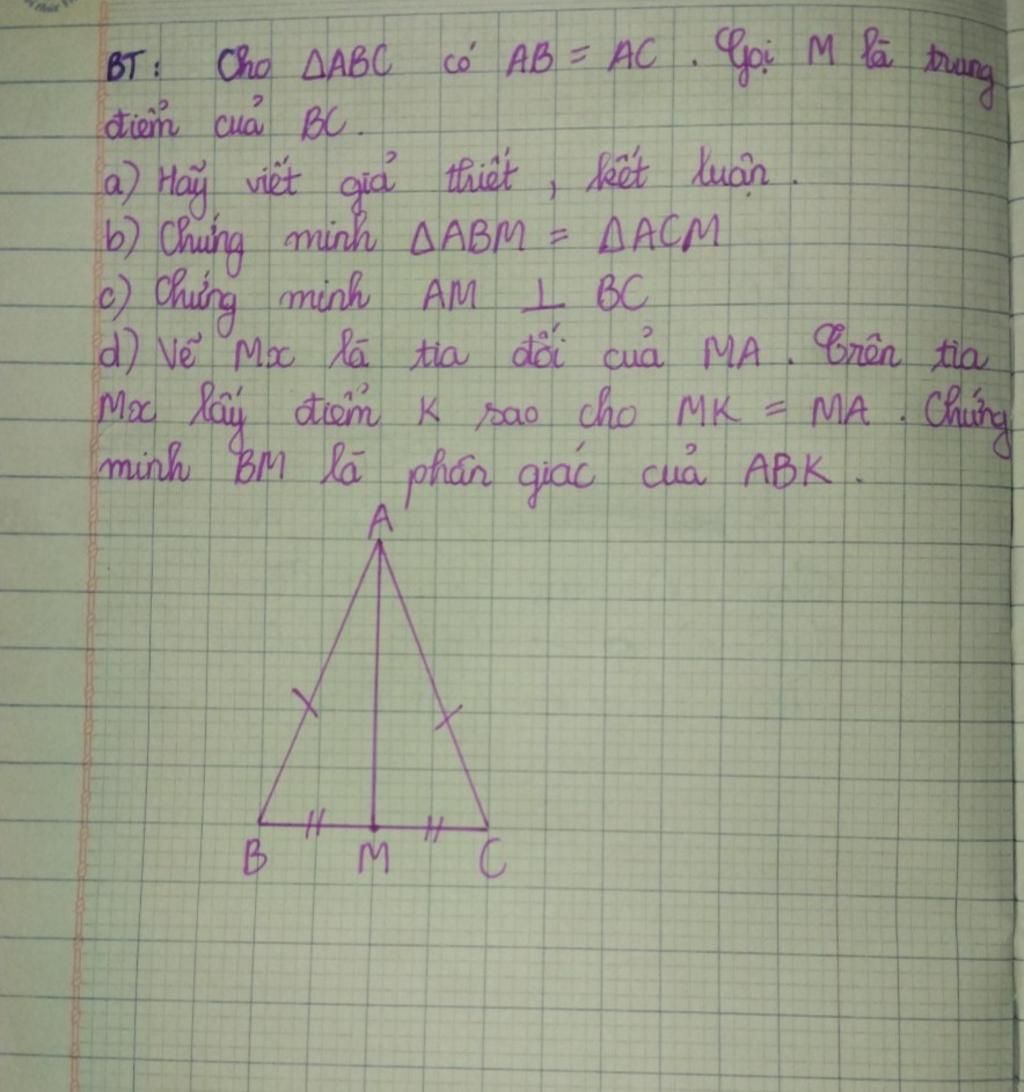 BT: Cho ΔABC có AB = AC. Gọi M là trung
điểm của BC.
a) Hãy viết giả thiết, kết luận.
b) Chứng minh ΔABM = ΔACM
c) Chứng minh AM ⊥ BC
d) Vẽ Mx là tia đối của MA. Trên tia
Mx lấy điểm K sao cho MK = MA. Chứng
minh BM là phân giác của ABK.
A
B M C